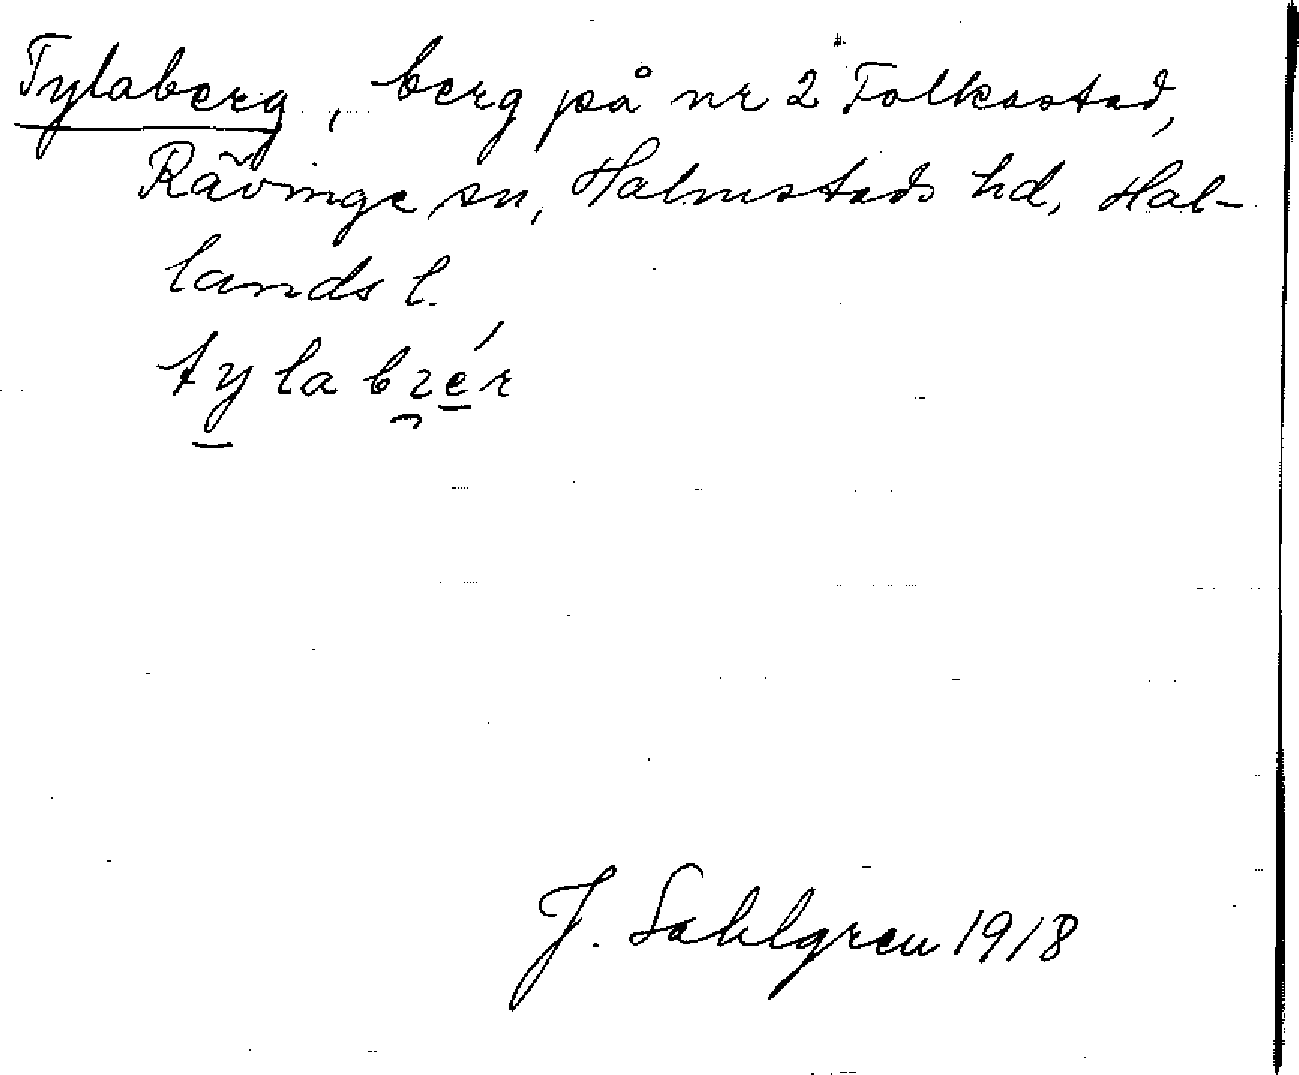 Tylaberg, berg på nr 2 Folkastad,
Rävinge sn, Halmstads hd, Hal-
lands l.
tylabrér
J. Sahlgren 1918